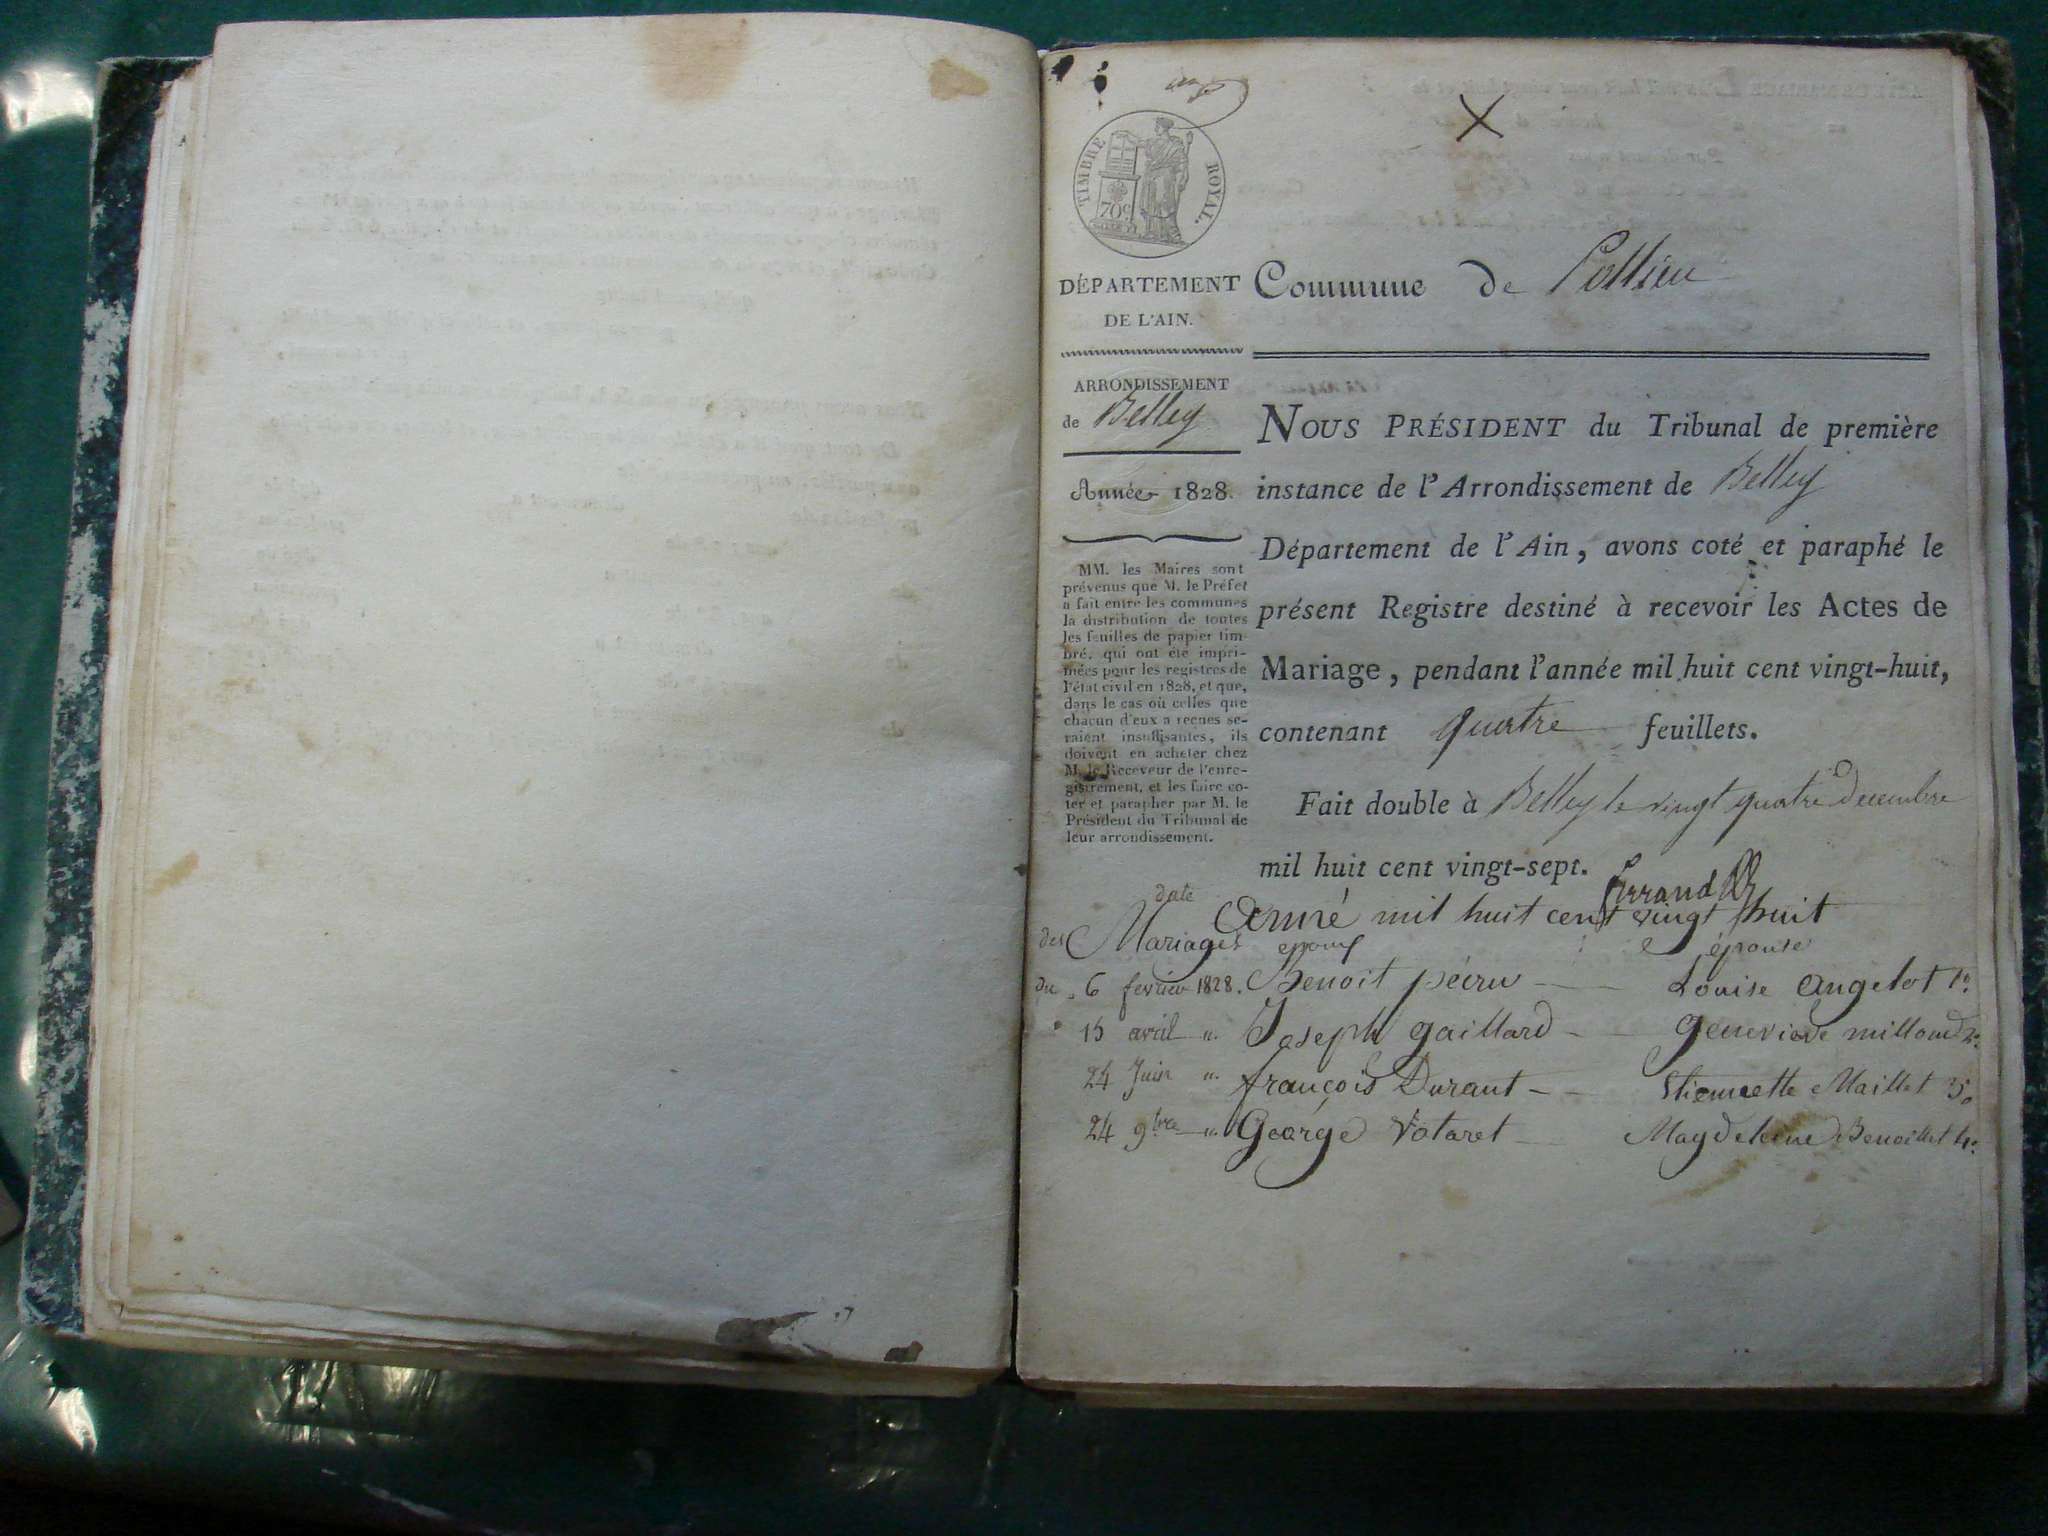 TIMBRE ROYAL.
70c
DÉPARTEMENT
DE L'AIN.
Commune de Pollieu
ARRONDISSEMENT
de Belley
Année 1828.
MM. les Maires sont
prévenus que M. le Préfet
a fait entre les communes
la distribution de toutes
les feuilles de papier tim-
bré, qui ont été impri-
mées pour les registres de
l'état civil en 1828, et que,
dans le cas où celles que
chacun d'eux a reçues se-
raient insuffisantes, ils
doivent en acheter chez
M. le Receveur de l'enre-
gistrement, et les faire co-
ter et parapher par M. le
Président du Tribunal de
leur arrondissement.
NOUS PRÉSIDENT du Tribunal de première
instance de l'Arrondissement de Belley
Département de l'Ain, avons coté et paraphé le
présent Registre destiné à recevoir les Actes de
Mariage, pendant l'année mil huit cent vingt-huit,
contenant quatre feuillets.
Fait double à Belley le vingt quatre Decembre
mil huit cent vingt-sept.
date Anné mil huit cent vingt huit
des Mariages epoux épouse
du 6 fevrier 1828. Benoit pécru Louise Angelot 1o
15 avril " Joseph gaillard genevieve milloud 2o
24 Juin " françois Durant Etiennette Maillet 3o
24 9bre " George Votaret Magdeleine Benoillet 4o